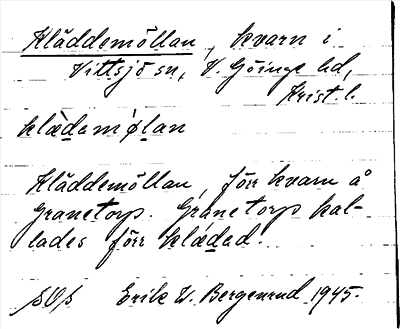 Kläddemöllan, kvarn i
Vittsjö sn, V. Göinge hd,
Krist. l.
klædamølan
Kläddemöllan, förr kvarn å
Granetorp. Granetorp kal-
lades förr klædad.
Erik W. Bergenrud 1945.